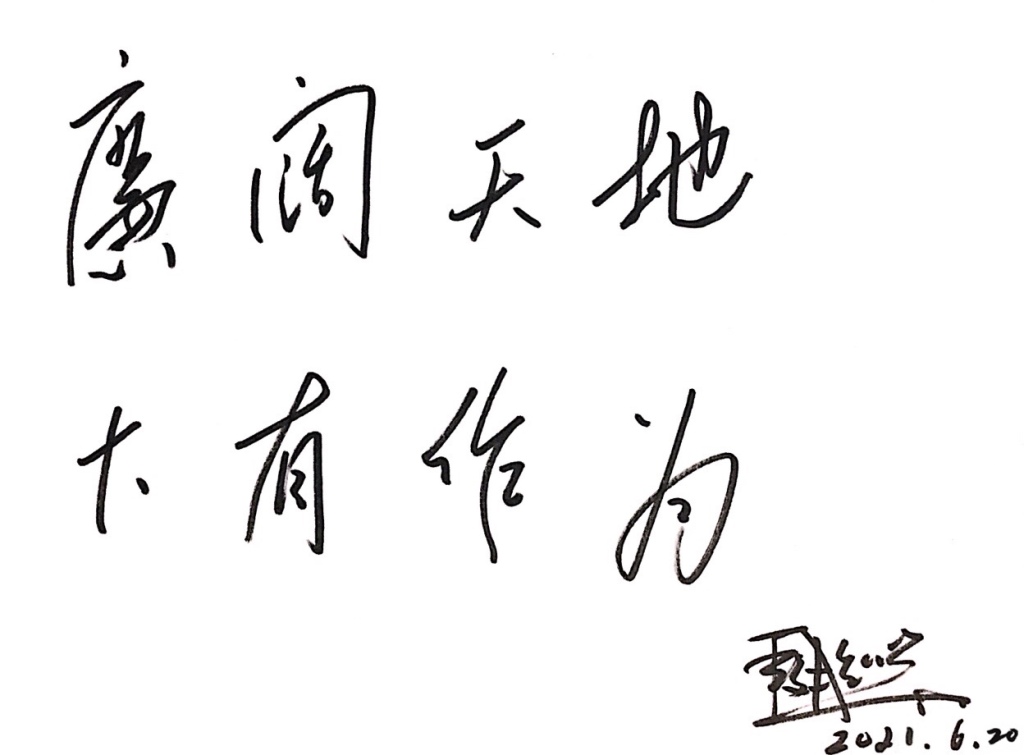 廣阔天地
大有作为
2021.6.20